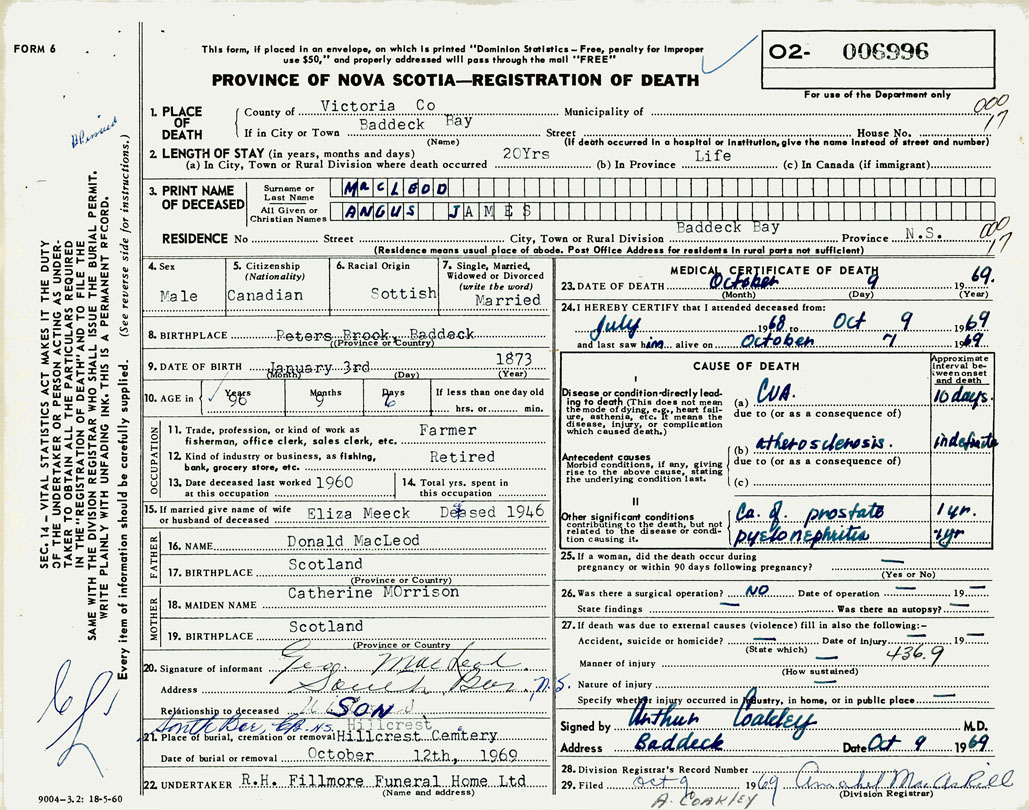 FORM 6
This form, if placed in an envelope, on which is printed "Dominion Statistics – Free, penalty for improper
use $50," and properly addressed will pass through the mail "FREE"
O2- 006996
PROVINCE OF NOVA SCOTIA—REGISTRATION OF DEATH
For use of the Department only
1. PLACE OF DEATH
County of Victoria Co Municipality of
000
17
If in City or Town Baddeck Bay Street House No.
(Name) (If death occurred in a hospital or institution, give the name instead of street and number)
2. LENGTH OF STAY (in years, months and days)
(a) In City, Town or Rural Division where death occurred 20Yrs (b) In Province Life (c) In Canada (if immigrant)
3. PRINT NAME OF DECEASED
Surname or Last Name MacLEOD
All Given or Christian Names ANGUS JAMES
RESIDENCE No Street City, Town or Rural Division Baddeck Bay Province N.S.
000
17
(Residence means usual place of abode. Post Office Address for residents in rural parts not sufficient)
4. Sex
Male
5. Citizenship
(Nationality)
Canadian
6. Racial Origin
Scottish
7. Single, Married,
Widowed or Divorced
(write the word)
Married
8. BIRTHPLACE Peters Brook, Baddeck
(Province or Country)
9. DATE OF BIRTH January 3rd 1873
(Month) (Day) (Year)
10. AGE in Years Months Days If less than one day old
96 9 6 hrs. or min.
OCCUPATION
11. Trade, profession, or kind of work as
fisherman, office clerk, sales clerk, etc. Farmer
12. Kind of industry or business, as fishing,
bank, grocery store, etc. Retired
13. Date deceased last worked 1960
at this occupation
14. Total yrs. spent in
this occupation
15. If married give name of wife
or husband of deceased Eliza Meeck Deased 1946
FATHER
16. NAME Donald MacLeod
17. BIRTHPLACE Scotland
(Province or Country)
MOTHER
18. MAIDEN NAME Catherine MOrrison
19. BIRTHPLACE Scotland
(Province or Country)
20. Signature of informant Geo. MacLeod
Address South Bar, N.S.
Relationship to deceased SON
South Bar, CB. N.S. Hillcrest
21. Place of burial, cremation or removal Hillcrest Cemtery
Date of burial or removal October 12th, 1969
22. UNDERTAKER R.H. Fillmore Funeral Home Ltd
(Name and address)
MEDICAL CERTIFICATE OF DEATH
23. DATE OF DEATH October 9 1969.
(Month) (Day) (Year)
24. I HEREBY CERTIFY that I attended deceased from:
July 1968 to Oct 9 1969
and last saw him alive on October 7 1969
CAUSE OF DEATH
Approximate
interval be-
tween onset
and death
I
Disease or condition directly lead-
ing to death (This does not mean
the mode of dying, e.g., heart fail-
ure, asthenia, etc. It means the
disease, injury, or complication
which caused death.)
(a) CVA. 10 days.
due to (or as a consequence of)
(b) atherosclerosis. indefinite
Antecedent causes
Morbid conditions, if any, giving
rise to the above cause, stating
the underlying condition last.
due to (or as a consequence of)
(c)
II
Other significant conditions
contributing to the death, but not
related to the disease or condi-
tion causing it.
Ca. of prostate 1 yr.
pyelonephritis 1yr
25. If a woman, did the death occur during
pregnancy or within 90 days following pregnancy? —
(Yes or No)
26. Was there a surgical operation? NO Date of operation — 19 —
State findings — Was there an autopsy? —
27. If death was due to external causes (violence) fill in also the following:–
Accident, suicide or homicide? — Date of injury — 19 —
(State which) 436.9
Manner of injury —
(How sustained)
Nature of injury —
Specify whether injury occurred in industry, in home, or in public place —
Signed by Arthur Coakley M.D.
Address Baddeck Date Oct 9 1969
28. Division Registrar's Record Number
29. Filed Oct 9 1969 Annabel MacAskill
(Division Registrar)
A. COAKLEY
SEC. 14 – VITAL STATISTICS ACT MAKES IT THE DUTY
OF THE UNDERTAKER OR PERSON ACTING AS UNDER-
TAKER TO OBTAIN ALL THE PARTICULARS REQUIRED
IN THE "REGISTRATION OF DEATH" AND TO FILE THE
SAME WITH THE DIVISION REGISTRAR WHO SHALL ISSUE THE BURIAL PERMIT.
WRITE PLAINLY WITH UNFADING INK. THIS IS A PERMANENT RECORD.
Every item of information should be carefully supplied. (See reverse side for instructions.)
9004—3.2: 18-5-60